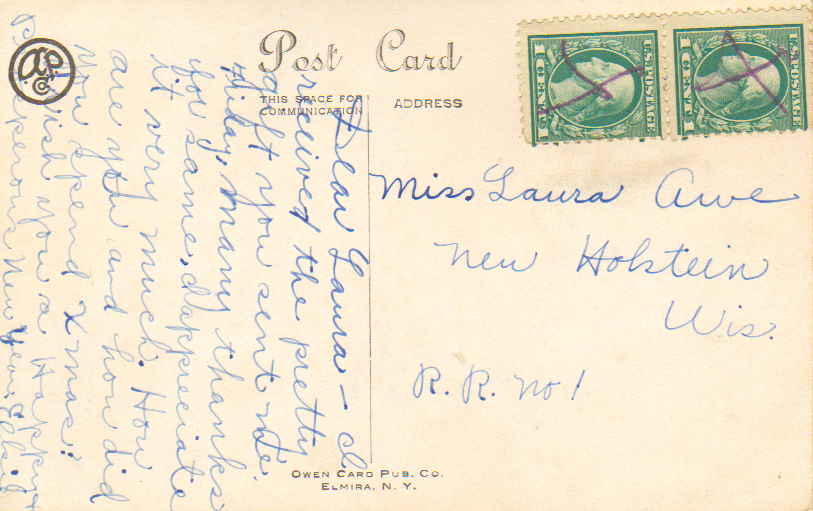 Post Card
THIS SPACE FOR
COMMUNICATION
ADDRESS
U.S. POSTAGE
1 CENT 1
U.S. POSTAGE
1 CENT 1
Dear Laura – I
received the pretty
gift you sent me
friday, Many thanks
for same, I appreciate
it very much. How
are you and how did
you spend Xmas?
wish you a Happy &
Prosperous New Year, Elsie
Miss Laura Awe
New Holstein
Wis.
R. R. No 1
OWEN CARD PUB. CO.
ELMIRA, N. Y.